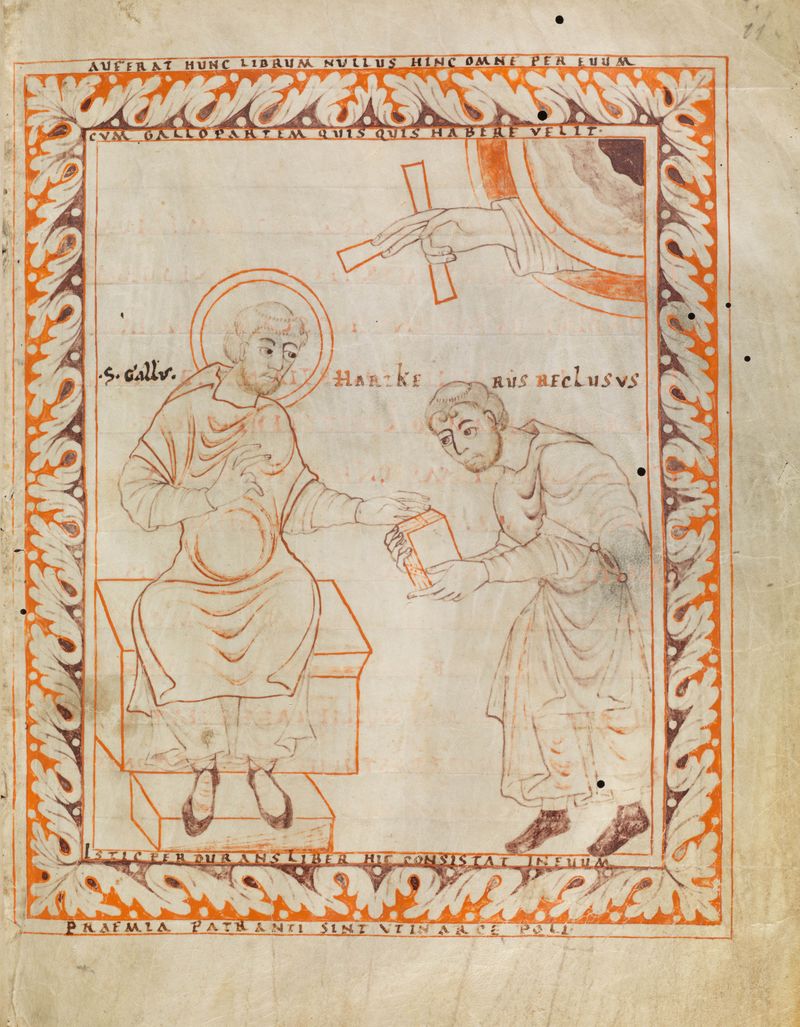 11
AUFERAT HUNC LIBRUM NULLUS HINC OMNE PER EUUM
CVM GALLO PARTEM QUIS QUIS HABERE VELIT·
·S· GALLVS· HARTKERUS RECLUSVS
ISTIC PERDURANS LIBER HIC CONSISTAT IN EUUM
PRAEMIA PATRANTI SINT VT IN ARCE POLI·